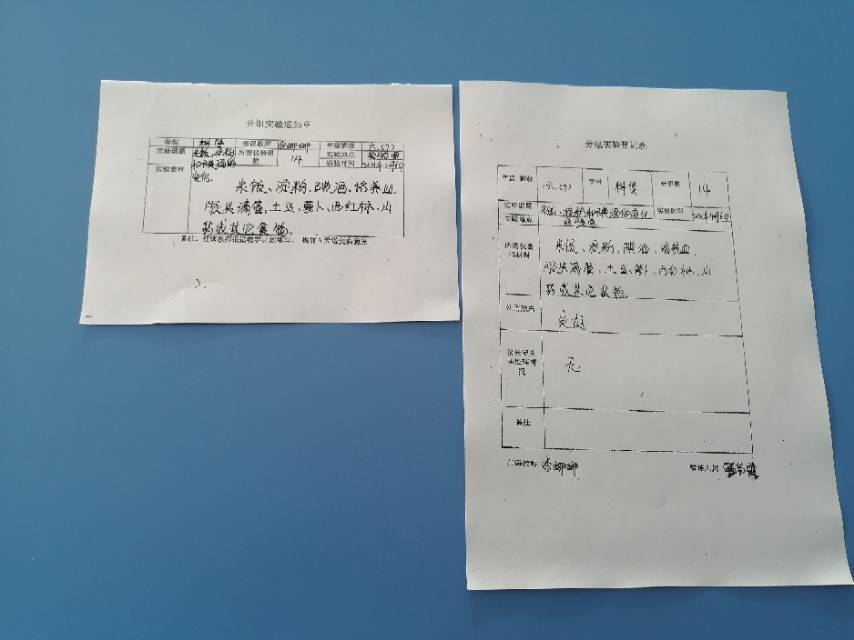 分组实验通知单
学科 科学 任课教师 李娜娜 年级班级 六.(7)
实验课题 米饭、淀粉和碘酒的变化 所需试验组数 14 实验地点 实验室
实验时间
实验器材 米饭、淀粉、碘酒、培养皿、
胶头滴管、土豆、萝卜、西红柿、山
药或其它食物
备注:任课教师根据教学计划填写, 提前3天送交实验室
分组实验登记表
年级 班级 学科 科学 分组数 14
实验课题 米饭、淀粉和碘酒的变化 实验时间
实验地点 实验室
所需仪器和材料 米饭、淀粉、碘酒、培养皿、
胶头滴管、土豆、萝卜、西红柿、山
药或其它食物
实验效果 良好
仪器损坏 情况 无
备注
任课教师 李娜娜 管理人员